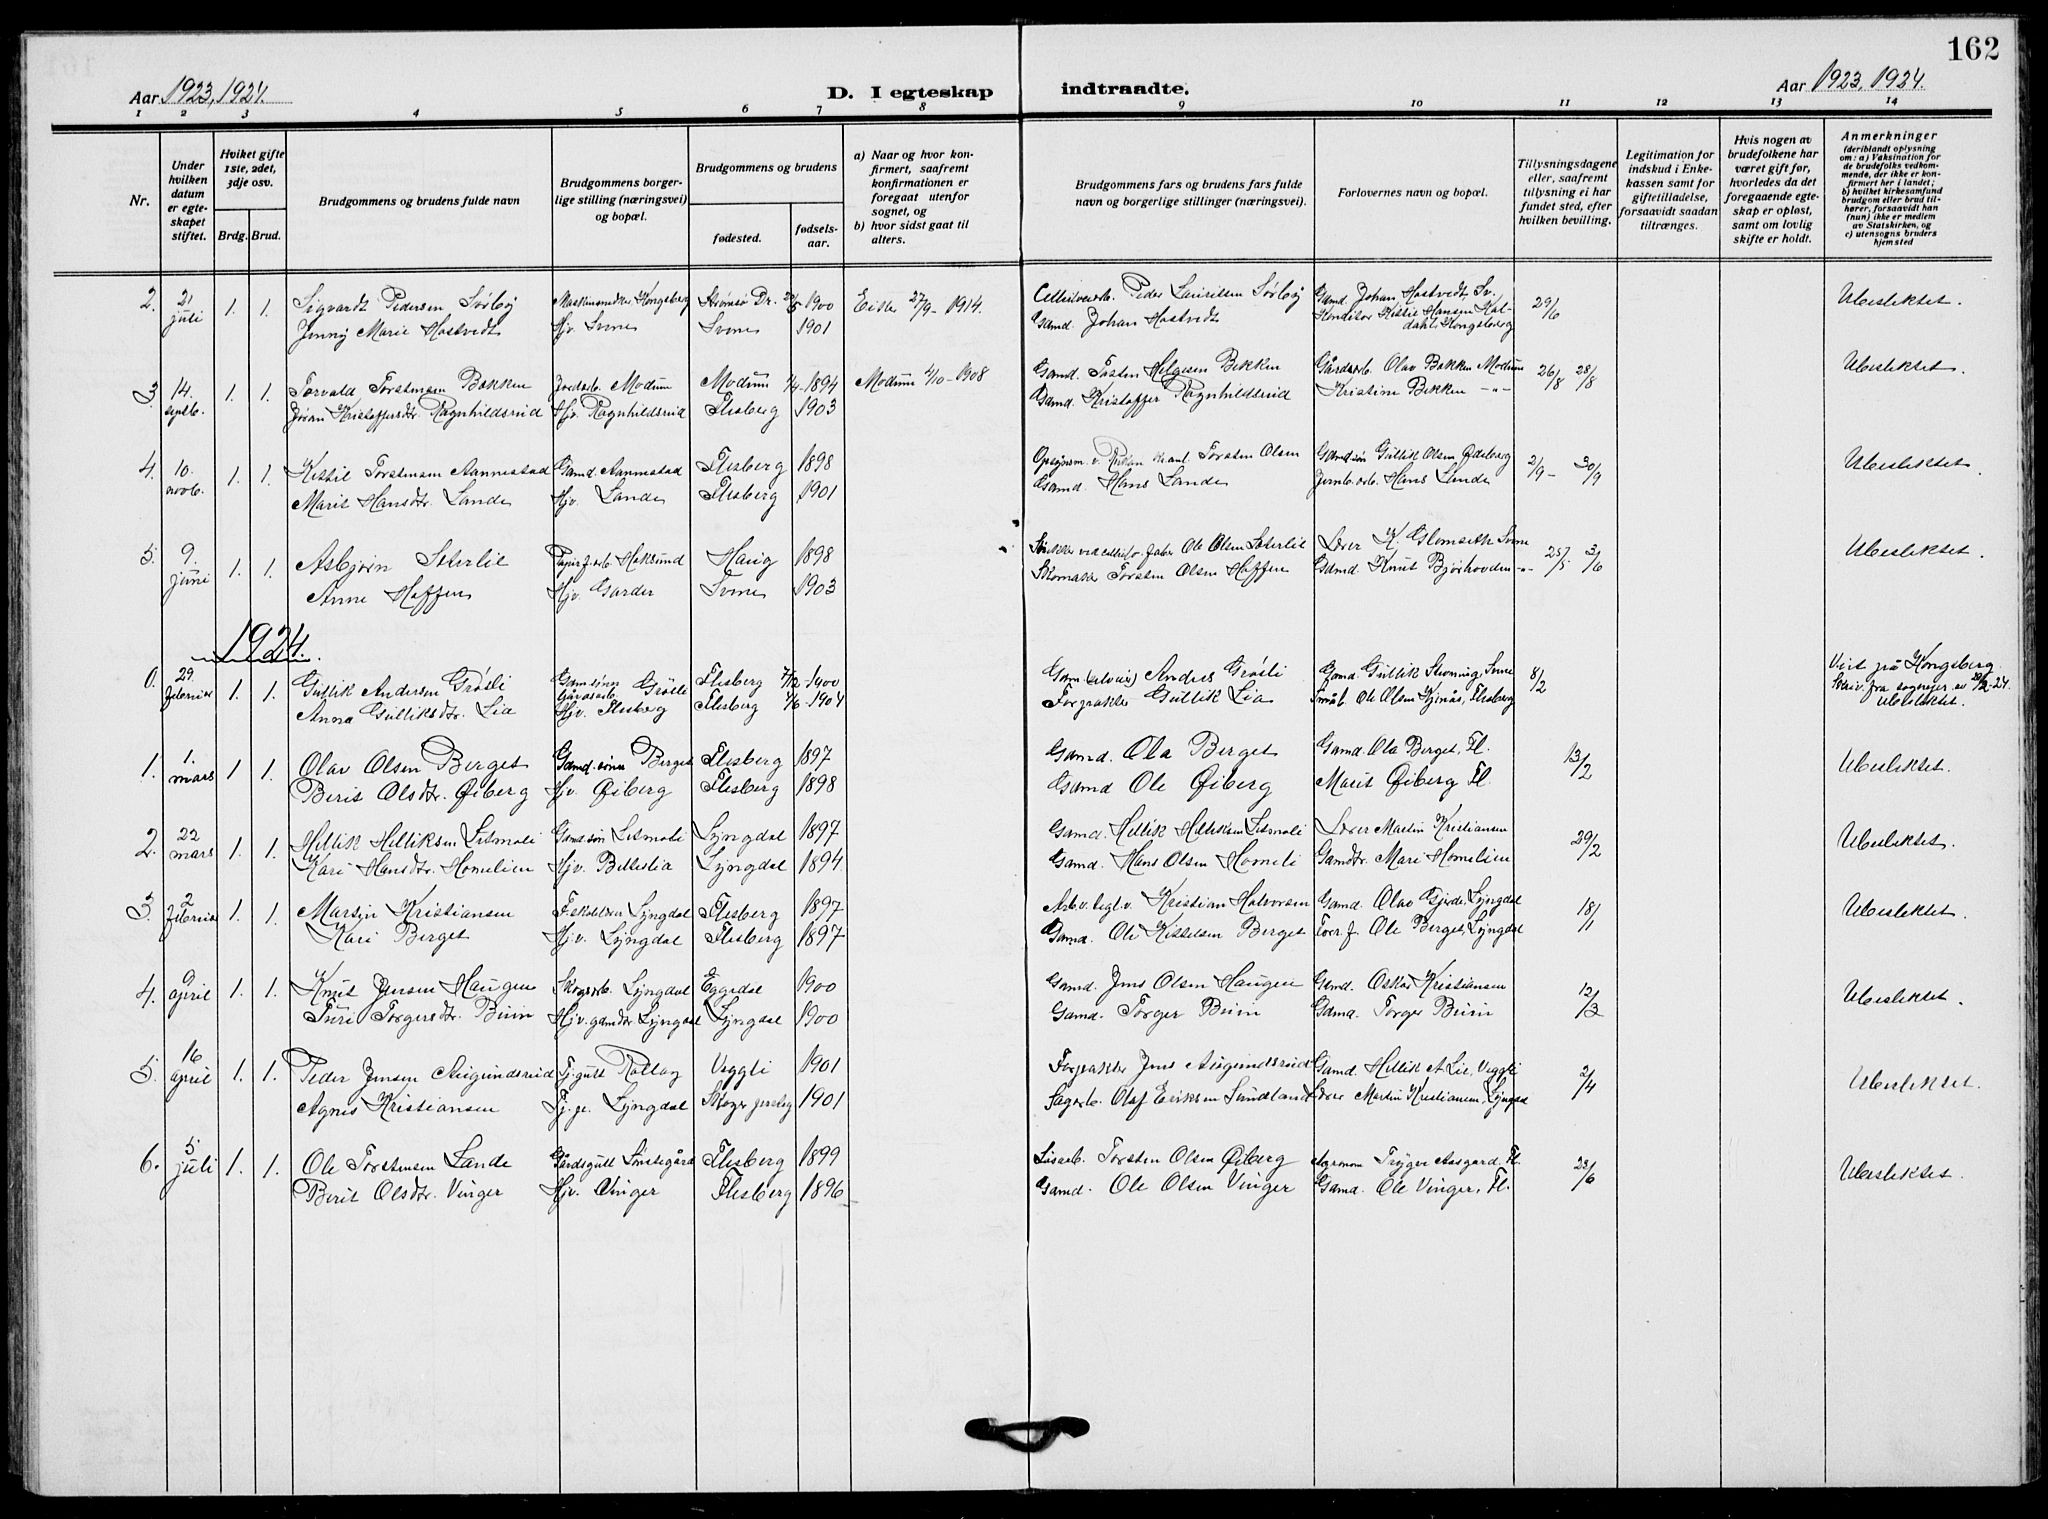 162
Aar 1923, 1924.
D. I egteskap indtraadte.
Aar 1923, 1924.
1 2 3 4 5 6 7 8 9 10 11 12 13 14
Nr.
Under hvilken datum er egteskapet stiftet.
Hviket gifte 1ste, 2det, 3dje osv.
Brdg. Brud.
Brudgommens og brudens fulde navn
Brudgommens borgerlige stilling (næringsvei) og bopæl.
Brudgommens og brudens
fødested.
fødselsaar.
a) Naar og hvor konfirmert, saafremt konfirmationen er foregaat utenfor sognet, og
b) hvor sidst gaat til alters.
Brudgommens fars og brudens fars fulde navn og borgerlige stillinger (næringsvei).
Forlovernes navn og bopæl.
Tillysningsdagene eller, saafremt tillysning ei har fundet sted, efter hvilken bevilling.
Legitimation for indskud i Enkekassen samt for giftetilladelse, forsaavidt saadan tiltrænges.
Hvis nogen av brudefolkene har været gift før, hvorledes da det foregaaende egteskap er opløst, samt om lovlig skifte er holdt.
Anmerkninger (deriblandt oplysning om: a) Vaksination for de brudefolks vedkommende, der ikke er konfirmert her i landet; b) hvilket kirkesamfund brudgom eller brud tilhører, forsaavidt han (hun) ikke er medlem av Statskirken, og c) utensogns bruders hjemsted
2. 21 juli 1. 1. Sigvardt Pedersen Sørby Kongsberg Strømsø Dr. 1900 27/9 - 1914. Peder Lauritsen Sørby Gamd. Johan Hostvedt, Sv. 29/6 Ubeslektet.
Jenny Marie Hostvedt Hj. Svene Svene 1901 Gamd. Johan Hostvedt Kittil Hansen Kongsberg
3. 14 septb. 1. 1. Torvald Torstensen Bakken Jordarb. Modum Modum 1894 Modum 2/10 - 1908 Gamd. Tosten Helgesen Bakken Gårdarb. Olav Bakken Modum 26/8 28/8 Ubeslektet.
Jøran Kristoffersdtr. Ragnhildsrud Hj. Ragnhildsrud Flesberg 1903 Gamd. Kristoffer Ragnhildsrud Kristine Bakken -"-
4. 10. novb. 1. 1. Kittil Torstensen Aannestad Gamd. Aannestad Flesberg 1898 Torsten Olsen Gamdsøn Gullik Olsen 2/9 - 30/9 Ubeslektet.
Marit Hansdtr. Lande Hjv. Lande Flesberg 1901 Gamd. Hans Lande Jernb. arb. Hans Lande
5. 9. juni 1. 1. Asbjørn Sæterlie Hoksund Haug 1898 Ole Olsen Sæterlie Lærer K. Glomseth Svene 25/5 3/6 Ubeslektet.
Anne Hoffen Hjv. Garder Svene 1903 Skomaker Torsten Olsen Hoffen Gamd. Knut Bjørhovden -"-
1924.
0. 29. februar 1. 1. Gullik Andersen Grøsli Gamdsønn Gårdsarb. Grøsli Flesberg 1900 Anders Grøsli Gamd. Gullik Svene 8/2 Viet på Kongsberg.
Anna Gulliksdtr. Lia Hjv. Flesberg Flesberg 1904 Forpakter Gullik Lia Ole Olsen Flesberg Ubeslektet.
1. 1. mars 1 1. Olav Olsen Berget Gamd. sønn Berget Flesberg 1897 Gamd. Ola Berget Gamd. Ola Berget, Fl. 13/2 Ubeslektet.
Berit Olsdtr. Øiberg Hjv. Øiberg Flesberg 1898 Gamd Ole Øiberg Marit Øiberg Fl.
2. 22 mars 1. 1. Hellik Helliksen Litmoli Gamdsøn Litmoli Lyngdal 1897 Gamd. Hellik Helliksen Litmoli Lærer Martin Kristiansen 29/2 Ubeslektet.
Kari Hansdtr. Homelien Hjv. Lyngdal 1894 Gamd. Hans Olsen Homeli Gamdtr. Mari Homelien
3. 2 februar 1. 1. Martin Kristiansen Lyngdal Flesberg 1897 Kristian Halvorsen Gamd. Olav Gjerde, Lyngdal 18/1 Ubeslektet.
Kari Berget Hjv. Lyngdal Flesberg 1897 Gamd. Ole Kittelsen Berget Ole Berget, Lyngdal
4. 9 april 1. 1. Knut Jensen Haugen Skogarb. Lyngdal Eggedal 1900 Gamd. Jens Olsen Haugen Gamd. Oskar Kristiansen 12/3 Ubeslektet.
Turi Torgersdtr. Buin Hjv. gamdtr Lyngdal Lyngdal 1900 Gamd. Torger Buin Gamd. Torger Buin
5. 16 april 1. 1. Peder Jensen Augundsrud Tj. gutt Rollag Veggli 1901 Forpakter Jens Augundsrud Gamd. Hellik A. Lie, Veggli 2/4 Ubeslektet.
Agnes Kristiansen Tj. p. Lyngdal 1901 Sagarb. Olaf Eriksen Sundland Lærer Martin Kristiansen, Lyngdal
6. 5 juli 1. 1. Ole Torstensen Lande Gårdsgutt Flesberg 1899 Løsarb. Torsten Olsen Øiberg Agronom Trygve Aasgard, Fl. 23/6 Ubeslektet.
Berit Olsdtr. Vinger Hjv. Vinger Flesberg 1896 Gamd. Ole Olsen Vinger Gamd. Ole Vinger, Fl.